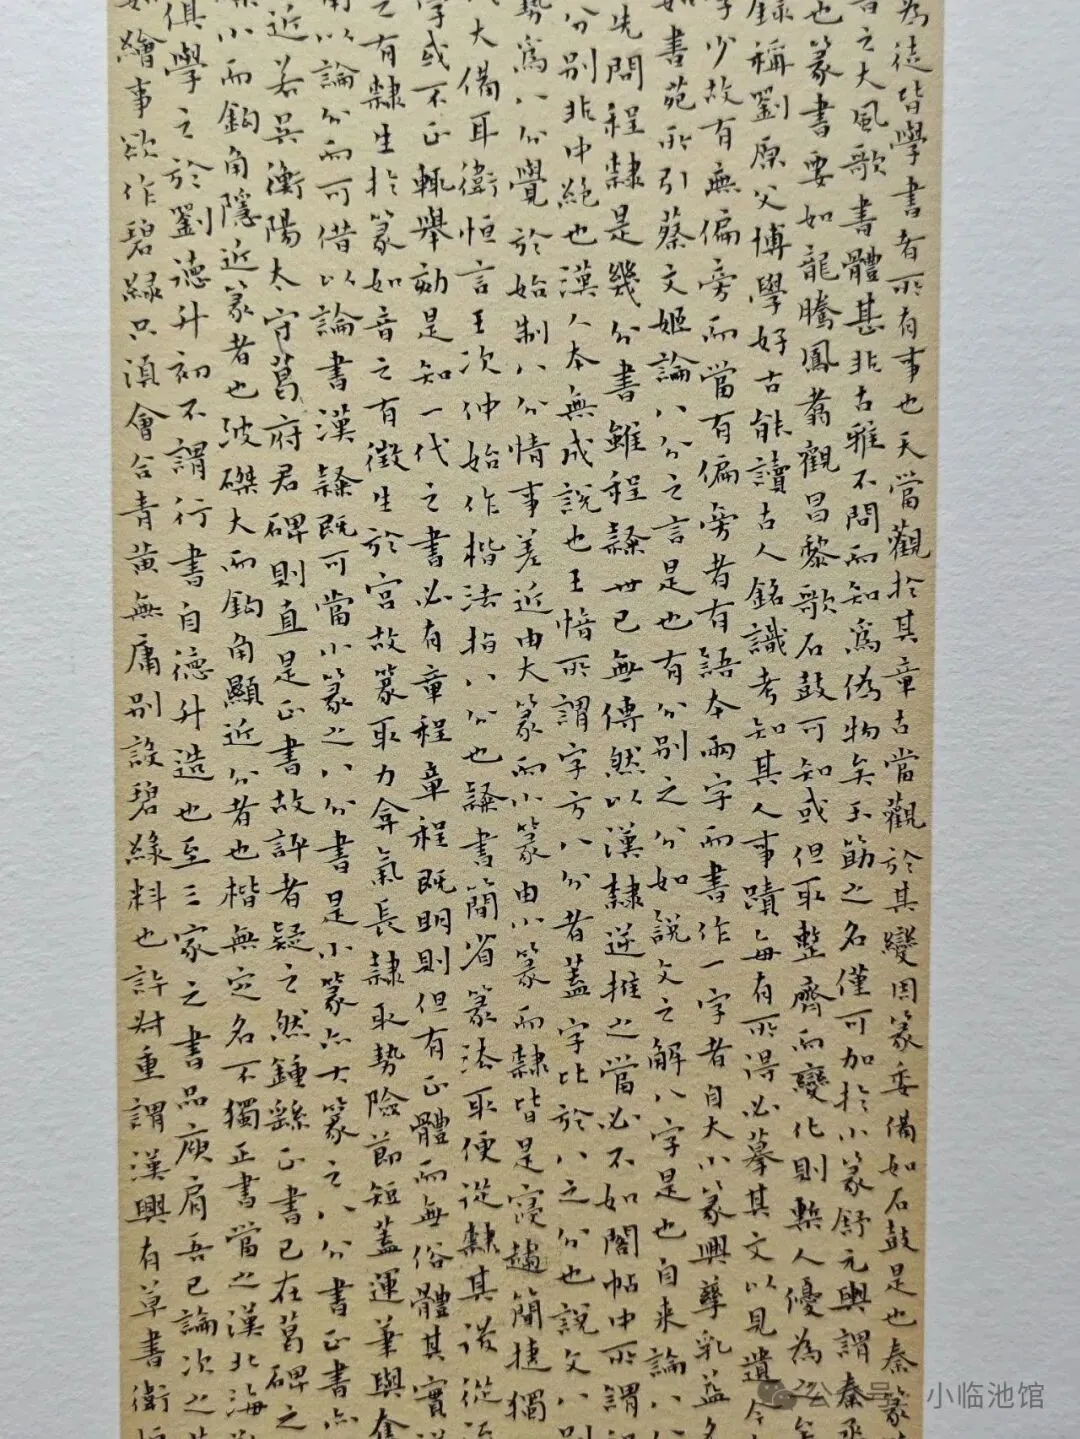 為徒皆學書者所有事也天當觀於其章古當觀於其變因篆委備如石鼓是也秦篆
之大風歌書體甚非古雅不問而知為偽物矣玉筯之名僅可加於小篆舒元輿謂秦丞
也篆書要如龍騰鳳翥觀昌黎歌石鼓可知或但取整齊而變化則槧人優為之矣
錄稱劉原父博學好古能讀古人銘識考知其人事蹟每有所得必摹其文以見遺今
字少故有無偏旁而當有偏旁者有語本兩字而書作一字者自大小篆興孳乳益多
如書苑所引蔡文姬論八分之言是也有分別之分如說文之解八字是也自來論八分
先問程隸是幾分書雖程隸世已無傳然以漢隸逆推之當必不如閣帖中所謂程
分別非中絕也漢人本無成說也王愔所謂字方八分者蓋字比於八之分也說文八別
勢為八分覺於始制八分情事差近由大篆而小篆由小篆而隸皆是寖趨簡捷獨
大備耳衛恒言王次仲始作楷法指八分也隸書簡省篆法取便從隸其後從流
學或不正輒舉劾是知一代之書必有章程章程既明則但有正體而無俗體其實漢
之有隸生於篆如音之有徵生於宮故篆取力弇氣長隸取勢險節短蓋運筆與奮
以論分而可借以論書漢隸既可當小篆之八分書是小篆亦大篆之八分書正書亦
近若吳衡陽太守葛府君碑則直是正書故評者疑之然鍾繇正書已在葛碑之
小而鉤角隱近篆者也波磔大而鉤角顯近分者也楷無定名不獨正書當之漢北海
俱學之於劉德升初不謂行書自德升造也至三家之書品庾肩吾已論次之
繪事欲作碧綠只須會合青黃無庸別設碧綠料也許叔重謂漢興有草書衛恒
公众号 小临池馆